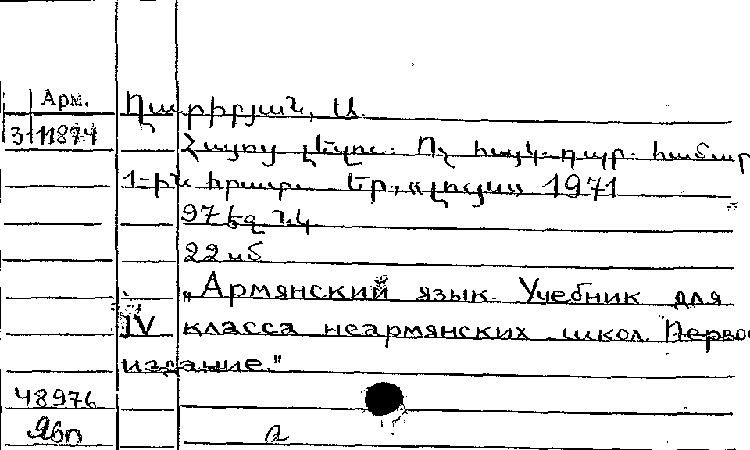 Арм. Ղարիբյան, Ա.
3-11874 Հայոց լեզու. Ոչ հայկ. դպր. համար
1-ին հրատ. Եր., «Լույս» 1971
97 եզ. նկ.
22 սմ
"Армянский язык. Учебник для
IV класса неармянских школ. Первое
издание."
48976